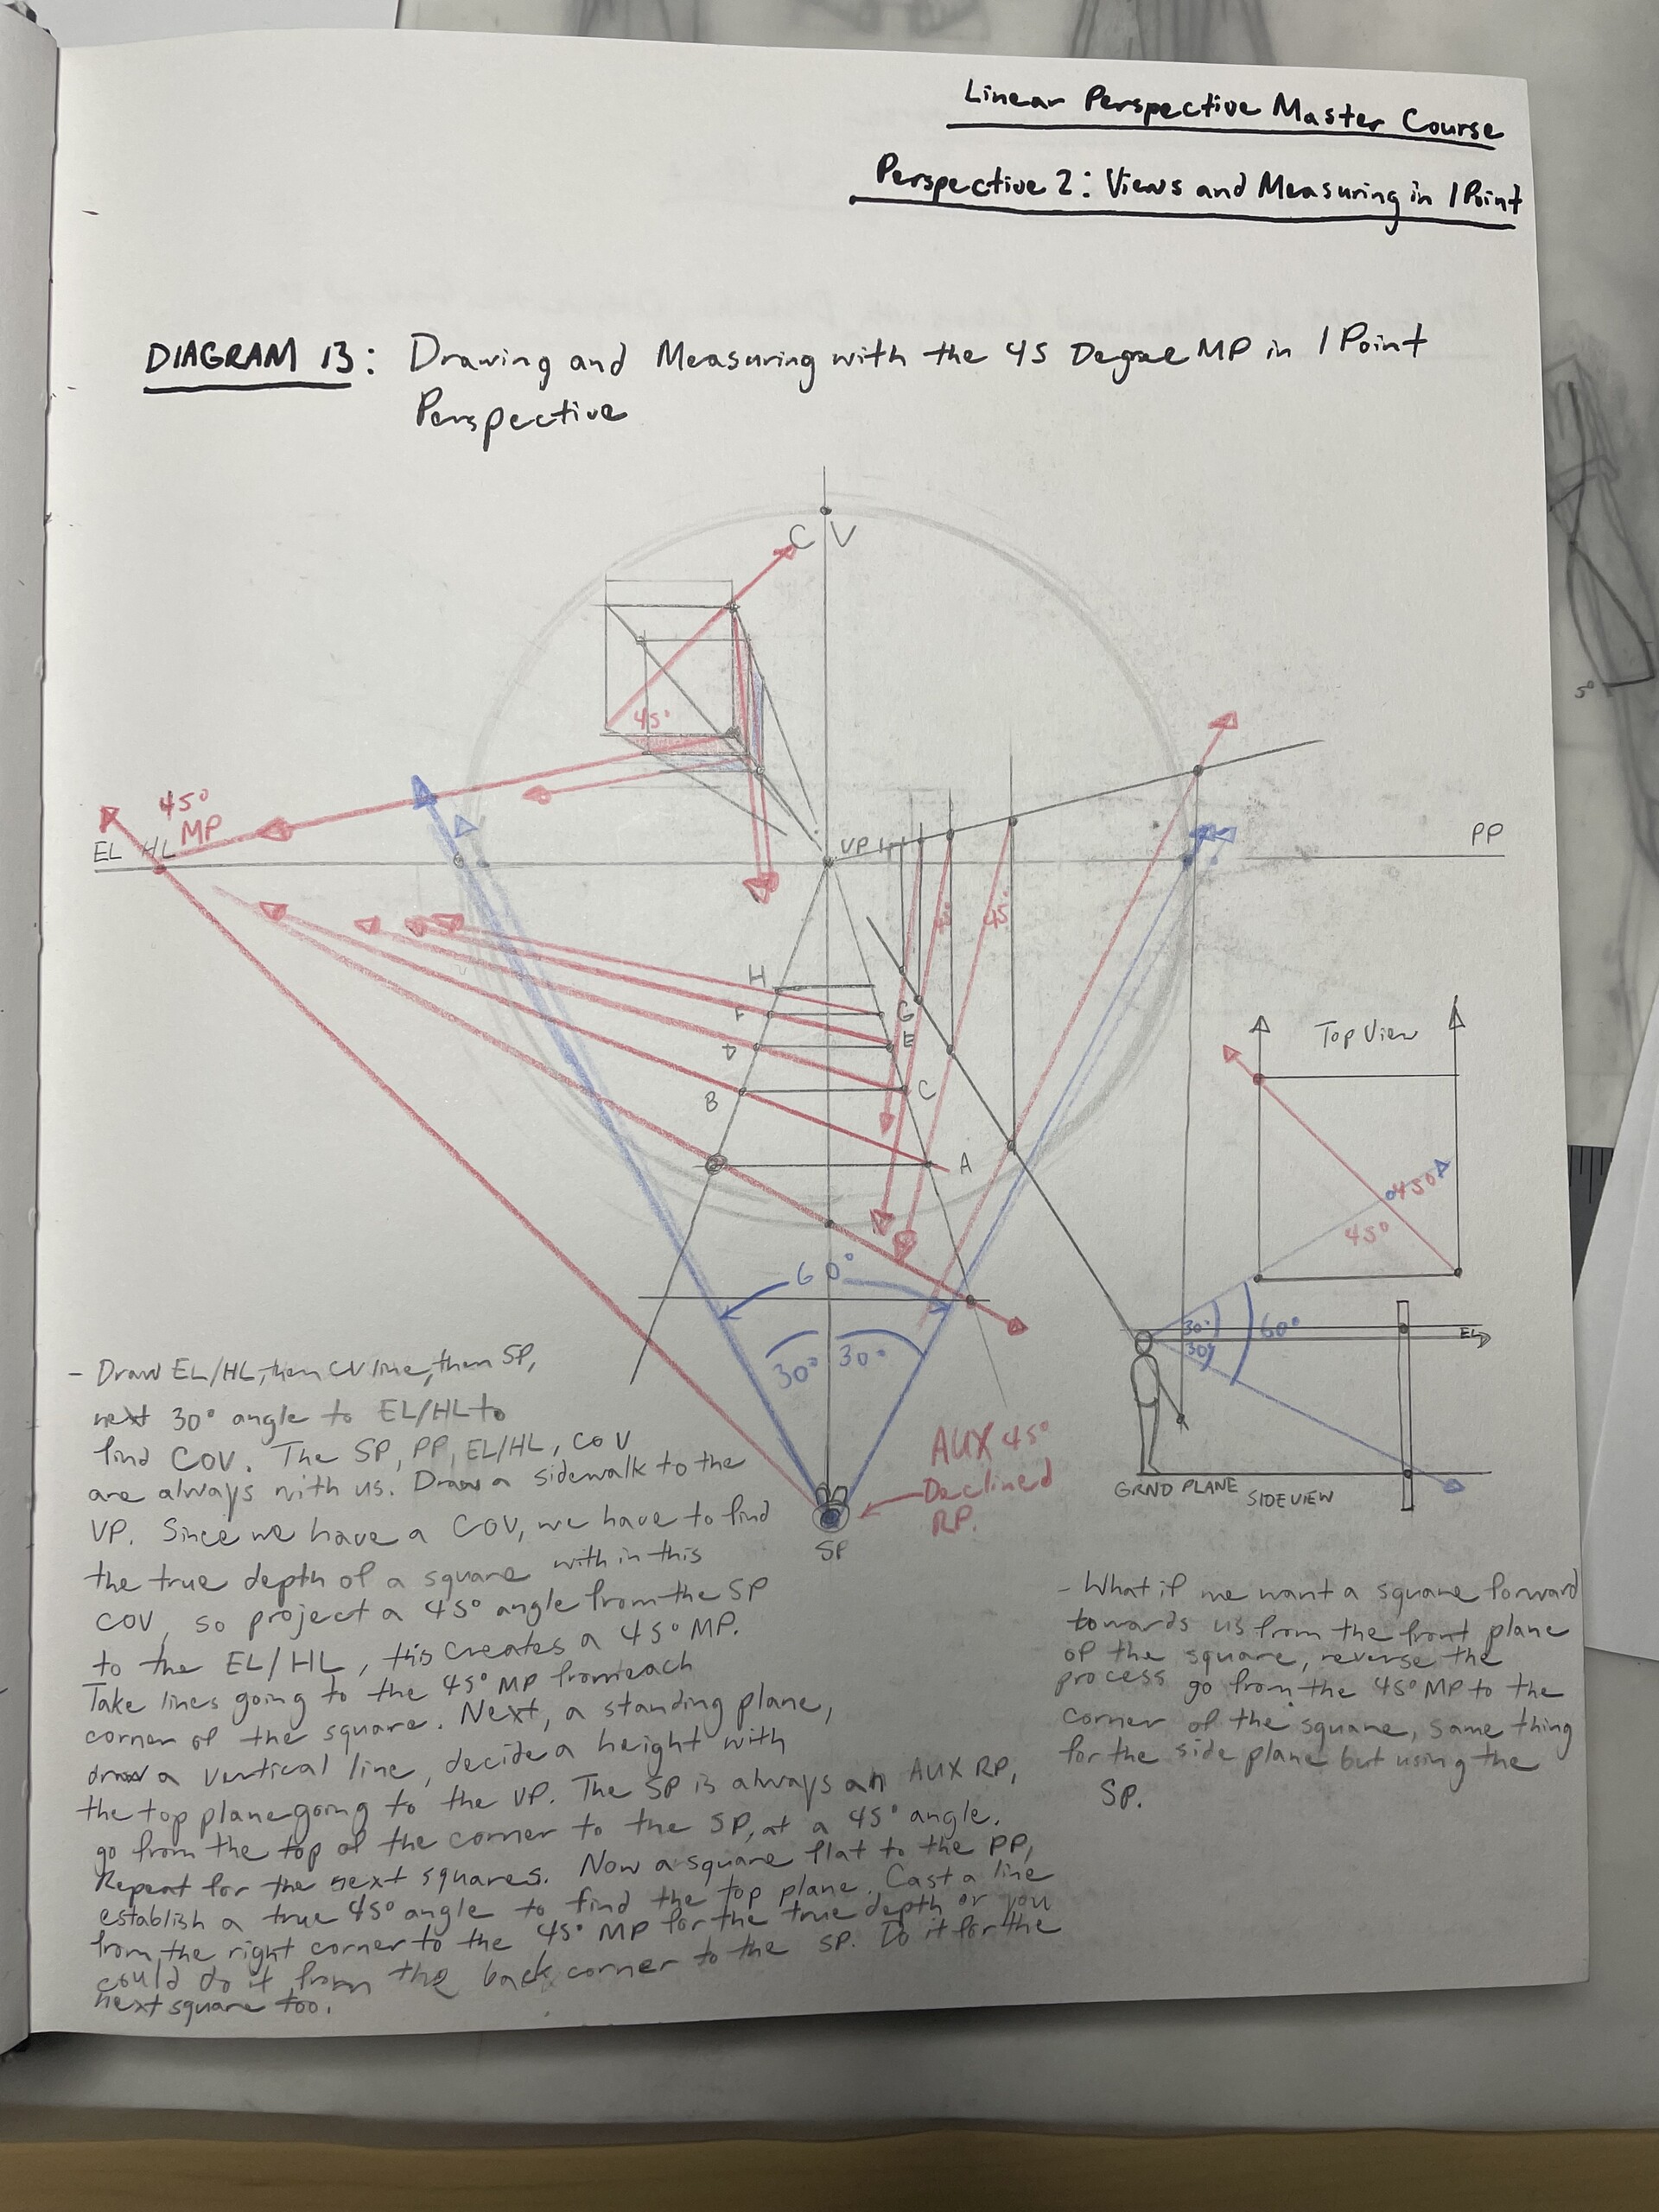 Linear Perspective Master Course
Perspective 2: Views and Measuring in 1 Point
DIAGRAM 13: Drawing and Measuring with the 45 Degree MP in 1 Point
Perspective
C V
45°
45°
MP
EL HL
VP 1
PP
45
H
G
F
E
D
C
B
A
60°
30° 30°
SP
AUX 45°
Declined
RP.
Top View
45°
45°
30°
30°
60°
EL
GRND PLANE SIDEVIEW
- Draw EL/HL, then CV line, then SP,
next 30° angle to EL/HL to
find COV. The SP, PP, EL/HL, COV
are always with us. Draw a sidewalk to the
VP. Since we have a COV, we have to find
the true depth of a square with in this
COV, so project a 45° angle from the SP
to the EL/HL, this creates a 45° MP.
Take lines going to the 45° MP from each
corner of the square. Next, a standing plane,
draw a vertical line, decide a height with
the top plane going to the VP. The SP is always an AUX RP,
go from the top of the corner to the SP, at a 45° angle.
Repeat for the next squares. Now a square flat to the PP,
establish a true 45° angle to find the top plane. Cast a line
from the right corner to the 45° MP for the true depth or you
could do it from the back corner to the SP. Do it for the
next square too.
- What if we want a square forward
towards us from the front plane
of the square, reverse the
process go from the 45° MP to the
corner of the square, same thing
for the side plane but using the
SP.